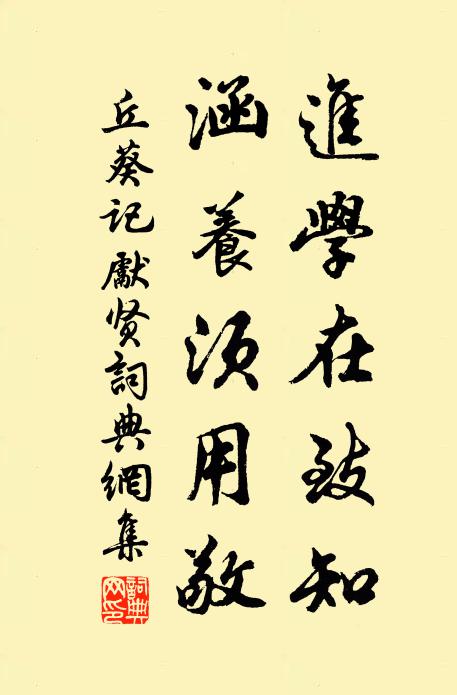 進學在致知
涵養須用敬
丘葵記獻贤詞典網集
詞典网印